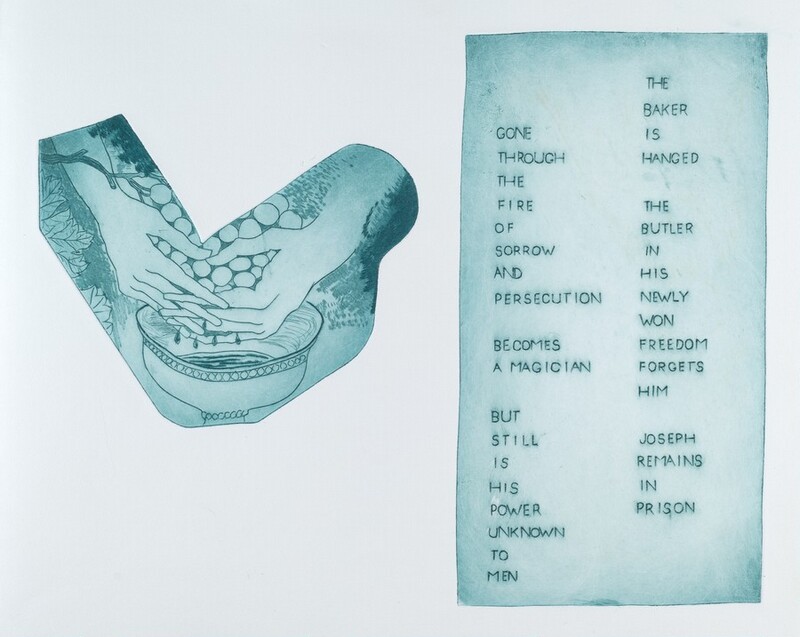 GONE
THROUGH
THE
FIRE
OF
SORROW
AND
PERSECUTION
BECOMES
A MAGICIAN
BUT
STILL
IS
HIS
POWER
UNKNOWN
TO
MEN
THE
BAKER
IS
HANGED
THE
BUTLER
IN
HIS
NEWLY
WON
FREEDOM
FORGETS
HIM
JOSEPH
REMAINS
IN
PRISON